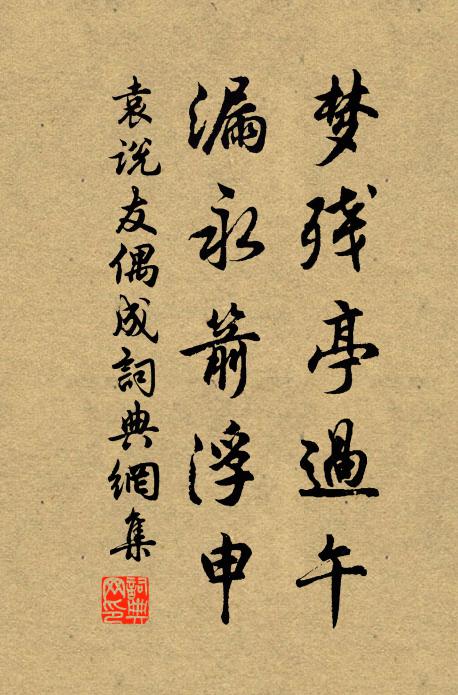 梦残亭過午
漏永箭浮申
袁説友偶成詞典網集
詞典網印